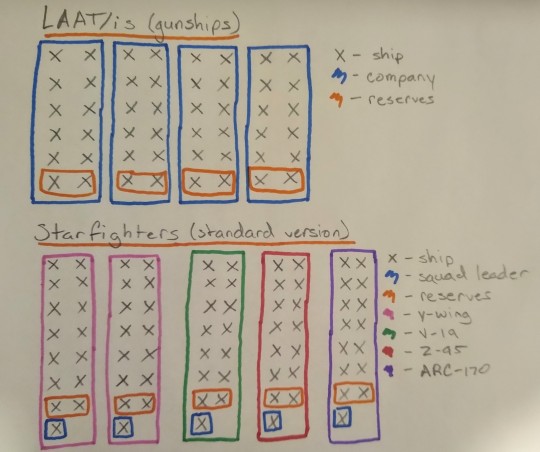 LAAT/is (gunships)
X - ship
- company
- reserves
Starfighters (standard version)
X - ship
- squad leader
- reserves
- Y-wing
- V-19
- Z-95
- ARC-170